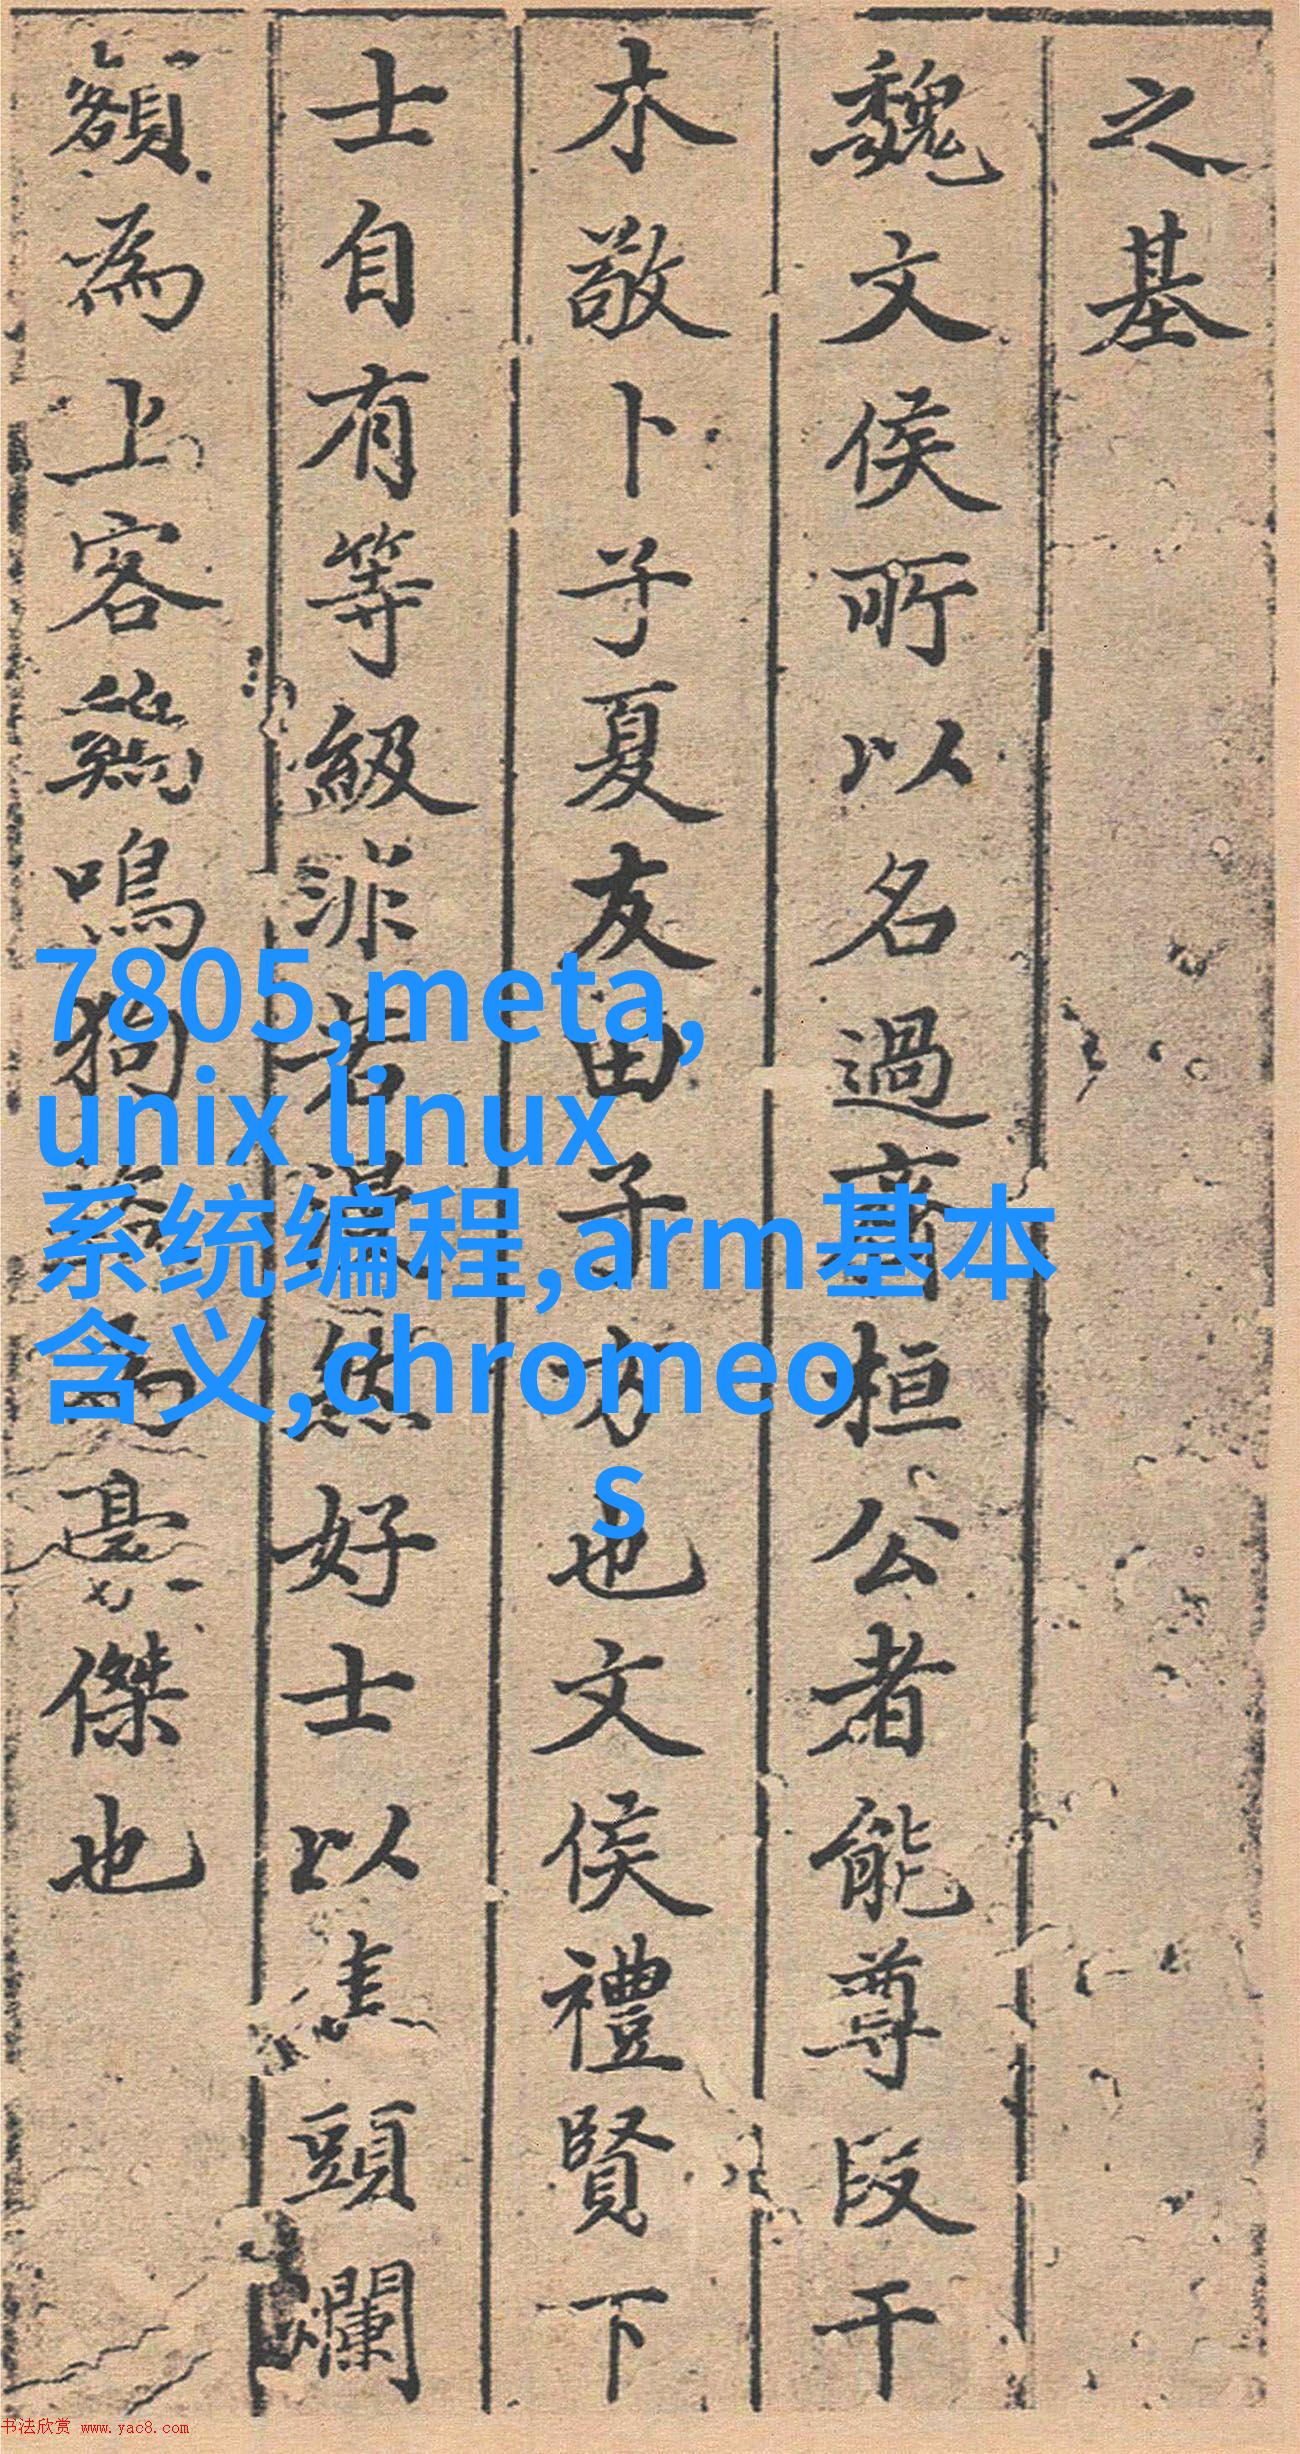 之基
魏文侯所以名過齊桓公者能尊段干
木敬卜子夏友田子方也文侯禮賢下
士自有等級非若漫然好士以焦頭爛
額為上客雞鳴狗盜為豪傑也
7805,meta,
unix linux
系统编程,arm基本
含义,chromeo
s
书法欣赏 www.yac8.com